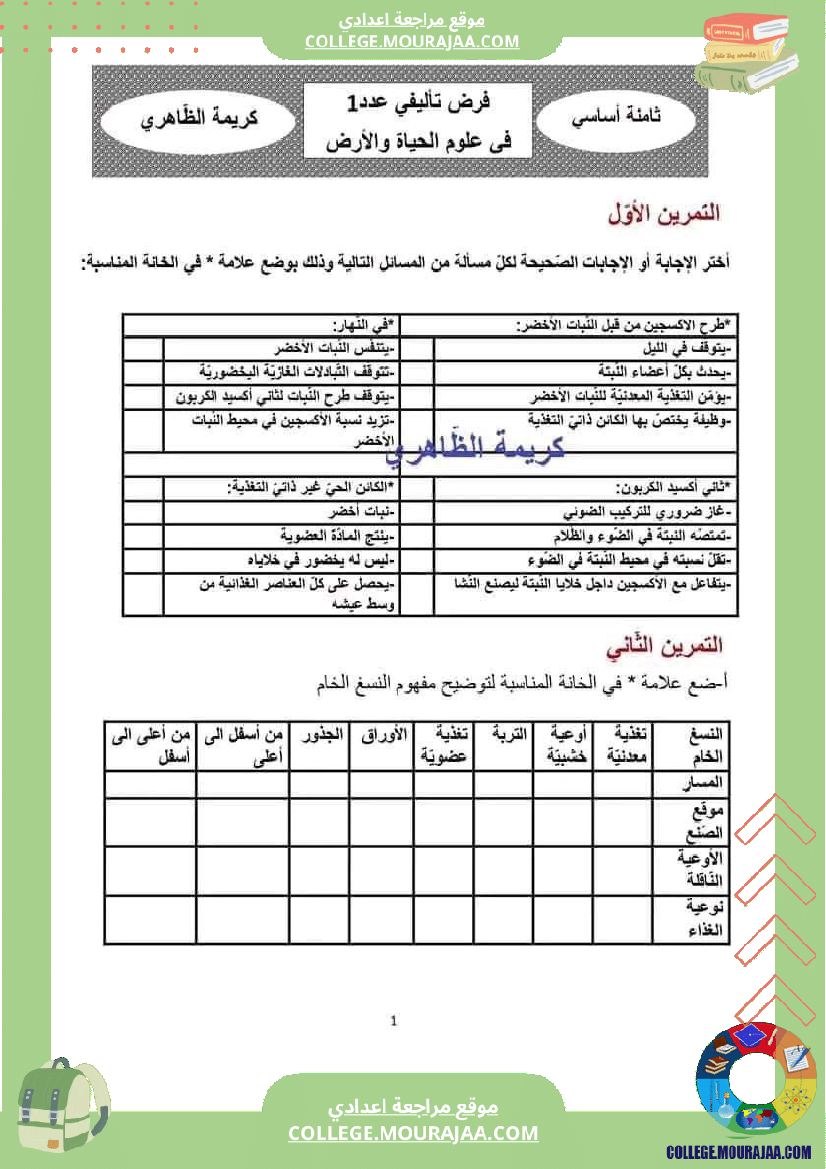 موقع مراجعة اعدادي
COLLEGE.MOURAJAA.COM
ثامنة أساسي
فرض تأليفي عدد1
في علوم الحياة والأرض
كريمة الظّاهري
التمرين الأوّل
أختر الإجابة أو الإجابات الصّحيحة لكلّ مسألة من المسائل التالية وذلك بوضع علامة * في الخانة المناسبة:
*طرح الاكسجين من قبل النّبات الأخضر:
*في النّهار:
-يتوقف في الليل
-يتنفّس النّبات الأخضر
-يحدث بكلّ أعضاء النّبتة
-تتوقّف التّبادلات الغازيّة اليخضوريّة
-يؤمّن التغذية المعدنيّة للنّبات الأخضر
-يتوقف طرح النّبات لثاني أكسيد الكربون
-وظيفة يختصّ بها الكائن ذاتيّ التغذية
-تزيد نسبة الأكسجين في محيط النّبات
الأخضر
كريمة الظّاهري
*ثاني أكسيد الكربون:
*الكائن الحيّ غير ذاتيّ التغذية:
-غاز ضروري للتركيب الضوئي
-نبات أخضر
-تمتصّه النبتة في الضّوء والظّلام
-ينتج المادّة العضوية
-تقلّ نسبته في محيط النّبتة في الضّوء
-ليس له يخضور في خلاياه
-يتفاعل مع الأكسجين داخل خلايا النّبتة ليصنع النّشا
-يحصل على كلّ العناصر الغذائية من
وسط عيشه
التمرين الثّاني
أ-ضع علامة * في الخانة المناسبة لتوضيح مفهوم النسغ الخام
النسغ الخام
تغذية معدنيّة
أوعية خشبيّة
التربة
تغذية عضويّة
الأوراق
الجذور
من أسفل الى أعلى
من أعلى الى أسفل
المسار
موقع
الصّنع
الأوعية
النّاقلة
نوعية
الغذاء
1
موقع مراجعة اعدادي
COLLEGE.MOURAJAA.COM
COLLEGE.MOURAJAA.COM